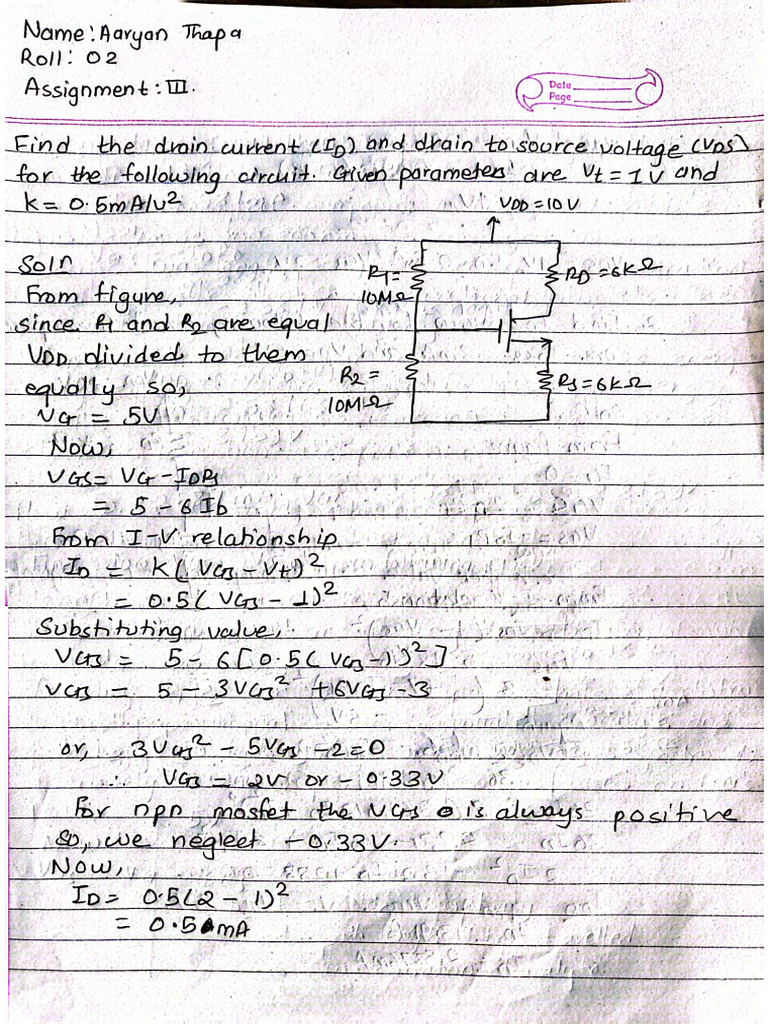 Name: Aaryan Thapa
Roll: 02
Assignment: III.
Date
Page
Find the drain current (ID) and drain to source voltage (VDS)
for the following circuit. Given parameters are Vt = 1V and
k = 0.5mA/v²
VDD = 10V
Soln
R1 =
10MΩ
RD = 6KΩ
From figure,
since R1 and R2 are equal
VDD divided to them
equally so,
R2 =
10MΩ
Rs = 6KΩ
VG = 5V
Now,
VGS = VG - IDRs
= 5 - 6ID
From I-V relationship
ID = K(VGS - Vt)²
= 0.5(VGS - 1)²
Substituting value,
VGS = 5 - 6[0.5(VGS - 1)²]
VGS = 5 - 3VGS² + 6VGS - 3
or, 3VGS² - 5VGS - 2 = 0
∴ VGS = 2V or - 0.33V
For npn mosfet the VGS is always positive
so, we neglect - 0.33V.
Now,
ID = 0.5(2 - 1)²
= 0.5 mA